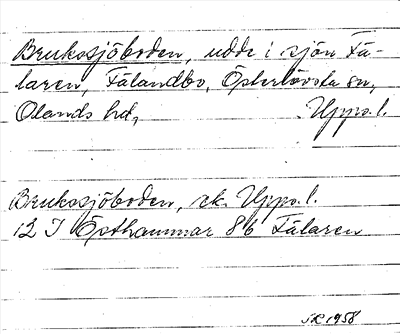 Brukssjöboden, udde i sjön Fä-
laren, Fälandbo, Österlövsta sn,
Olands hd, Upps. l.
Brukssjöboden, ek. Upps. l.
12 I Östhammar 8 b Fälaren
SR 1958